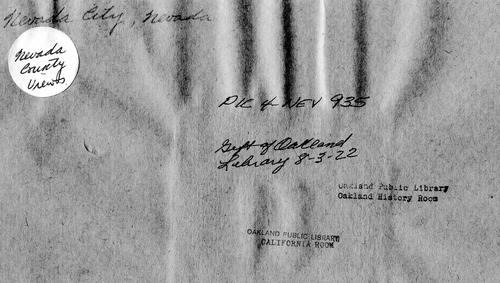 Nevada City, Nevada
Nevada
County
Views
PIC 4 NEV 935
Gift of Oakland
Library 8-3-22
Oakland Public Library
Oakland History Room
OAKLAND PUBLIC LIBRARY
CALIFORNIA ROOM